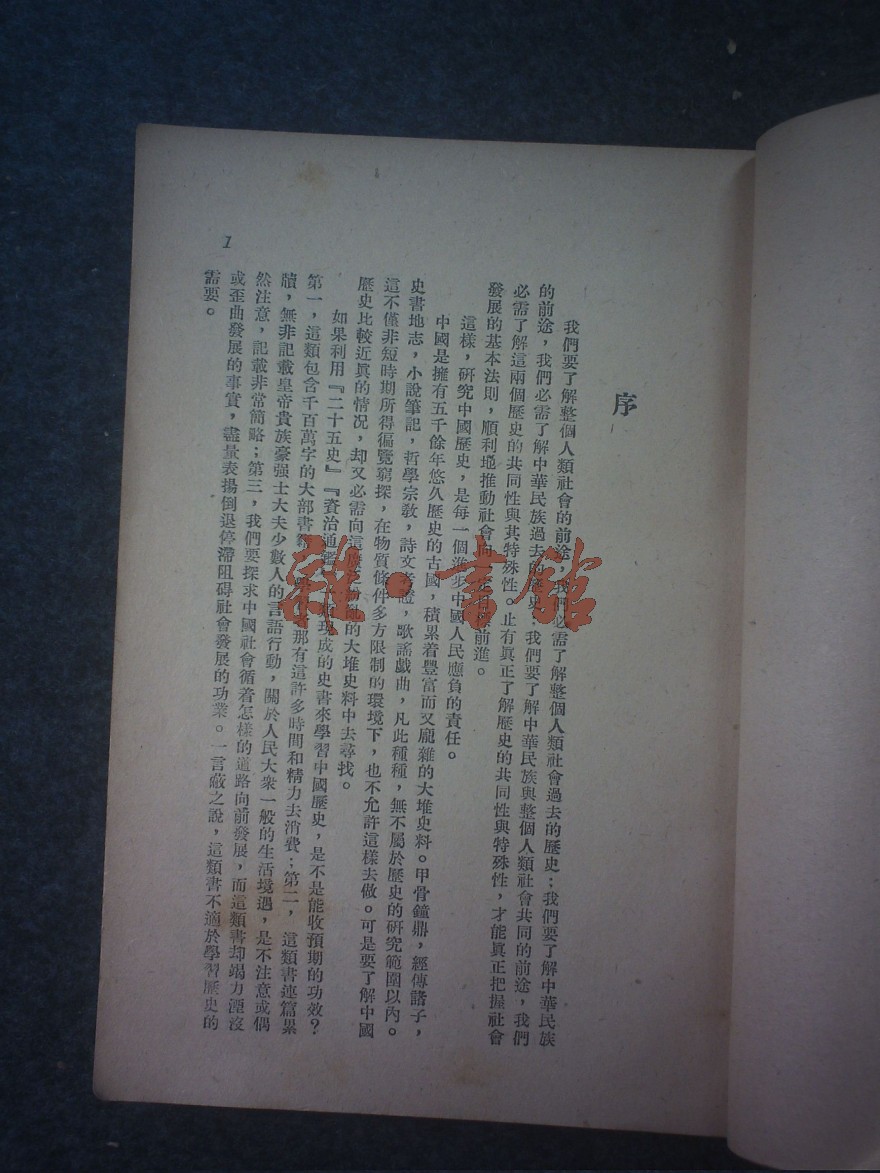 序
我們要了解整個人類社會的前途，我們必需了解整個人類社會過去的歷史；我們要了解中華民族
的前途，我們必需了解中華民族過去的歷史，我們要了解中華民族與整個人類社會共同的前途，我們
必需了解這兩個歷史的共同性與其特殊性。止有真正了解歷史的共同性與特殊性，才能真正把握社會
發展的基本法則，順利地推動社會向前進。
這樣，研究中國歷史，是每一個進步中國人民應負的責任。
中國是擁有五千餘年悠久歷史的古國，積累着豐富而又龐雜的大堆史料。甲骨鐘鼎，經傳諸子，
史書地志，小說筆記，哲學宗教，詩文考證，歌謠戲曲，凡此種種，無不屬於歷史的研究範圍以內。
這不僅非短時期所得徧覽窮探，在物質條件多方限制的環境下，也不允許這樣去做。可是要了解中國
歷史比較近眞的情況，却又必需向這的大堆史料中去尋找。
如果利用『二十五史』『資治通鑑現成的史書來學習中國歷史，是不是能收預期的功效？
第一，這類包含千百萬字的大部書那有這許多時間和精力去消費；第二，這類書連篇累
牘，無非記載皇帝貴族豪强士大夫少數人的言語行動，關於人民大衆一般的生活境遇，是不注意或偶
然注意，記載非常簡略；第三，我們要探求中國社會循着怎樣的道路向前發展，而這類書却竭力湮沒
或歪曲發展的事實，盡量表揚倒退停滯阻碍社會發展的功業。一言蔽之說，這類書不適於學習歷史的
需要。
1
雜·書館